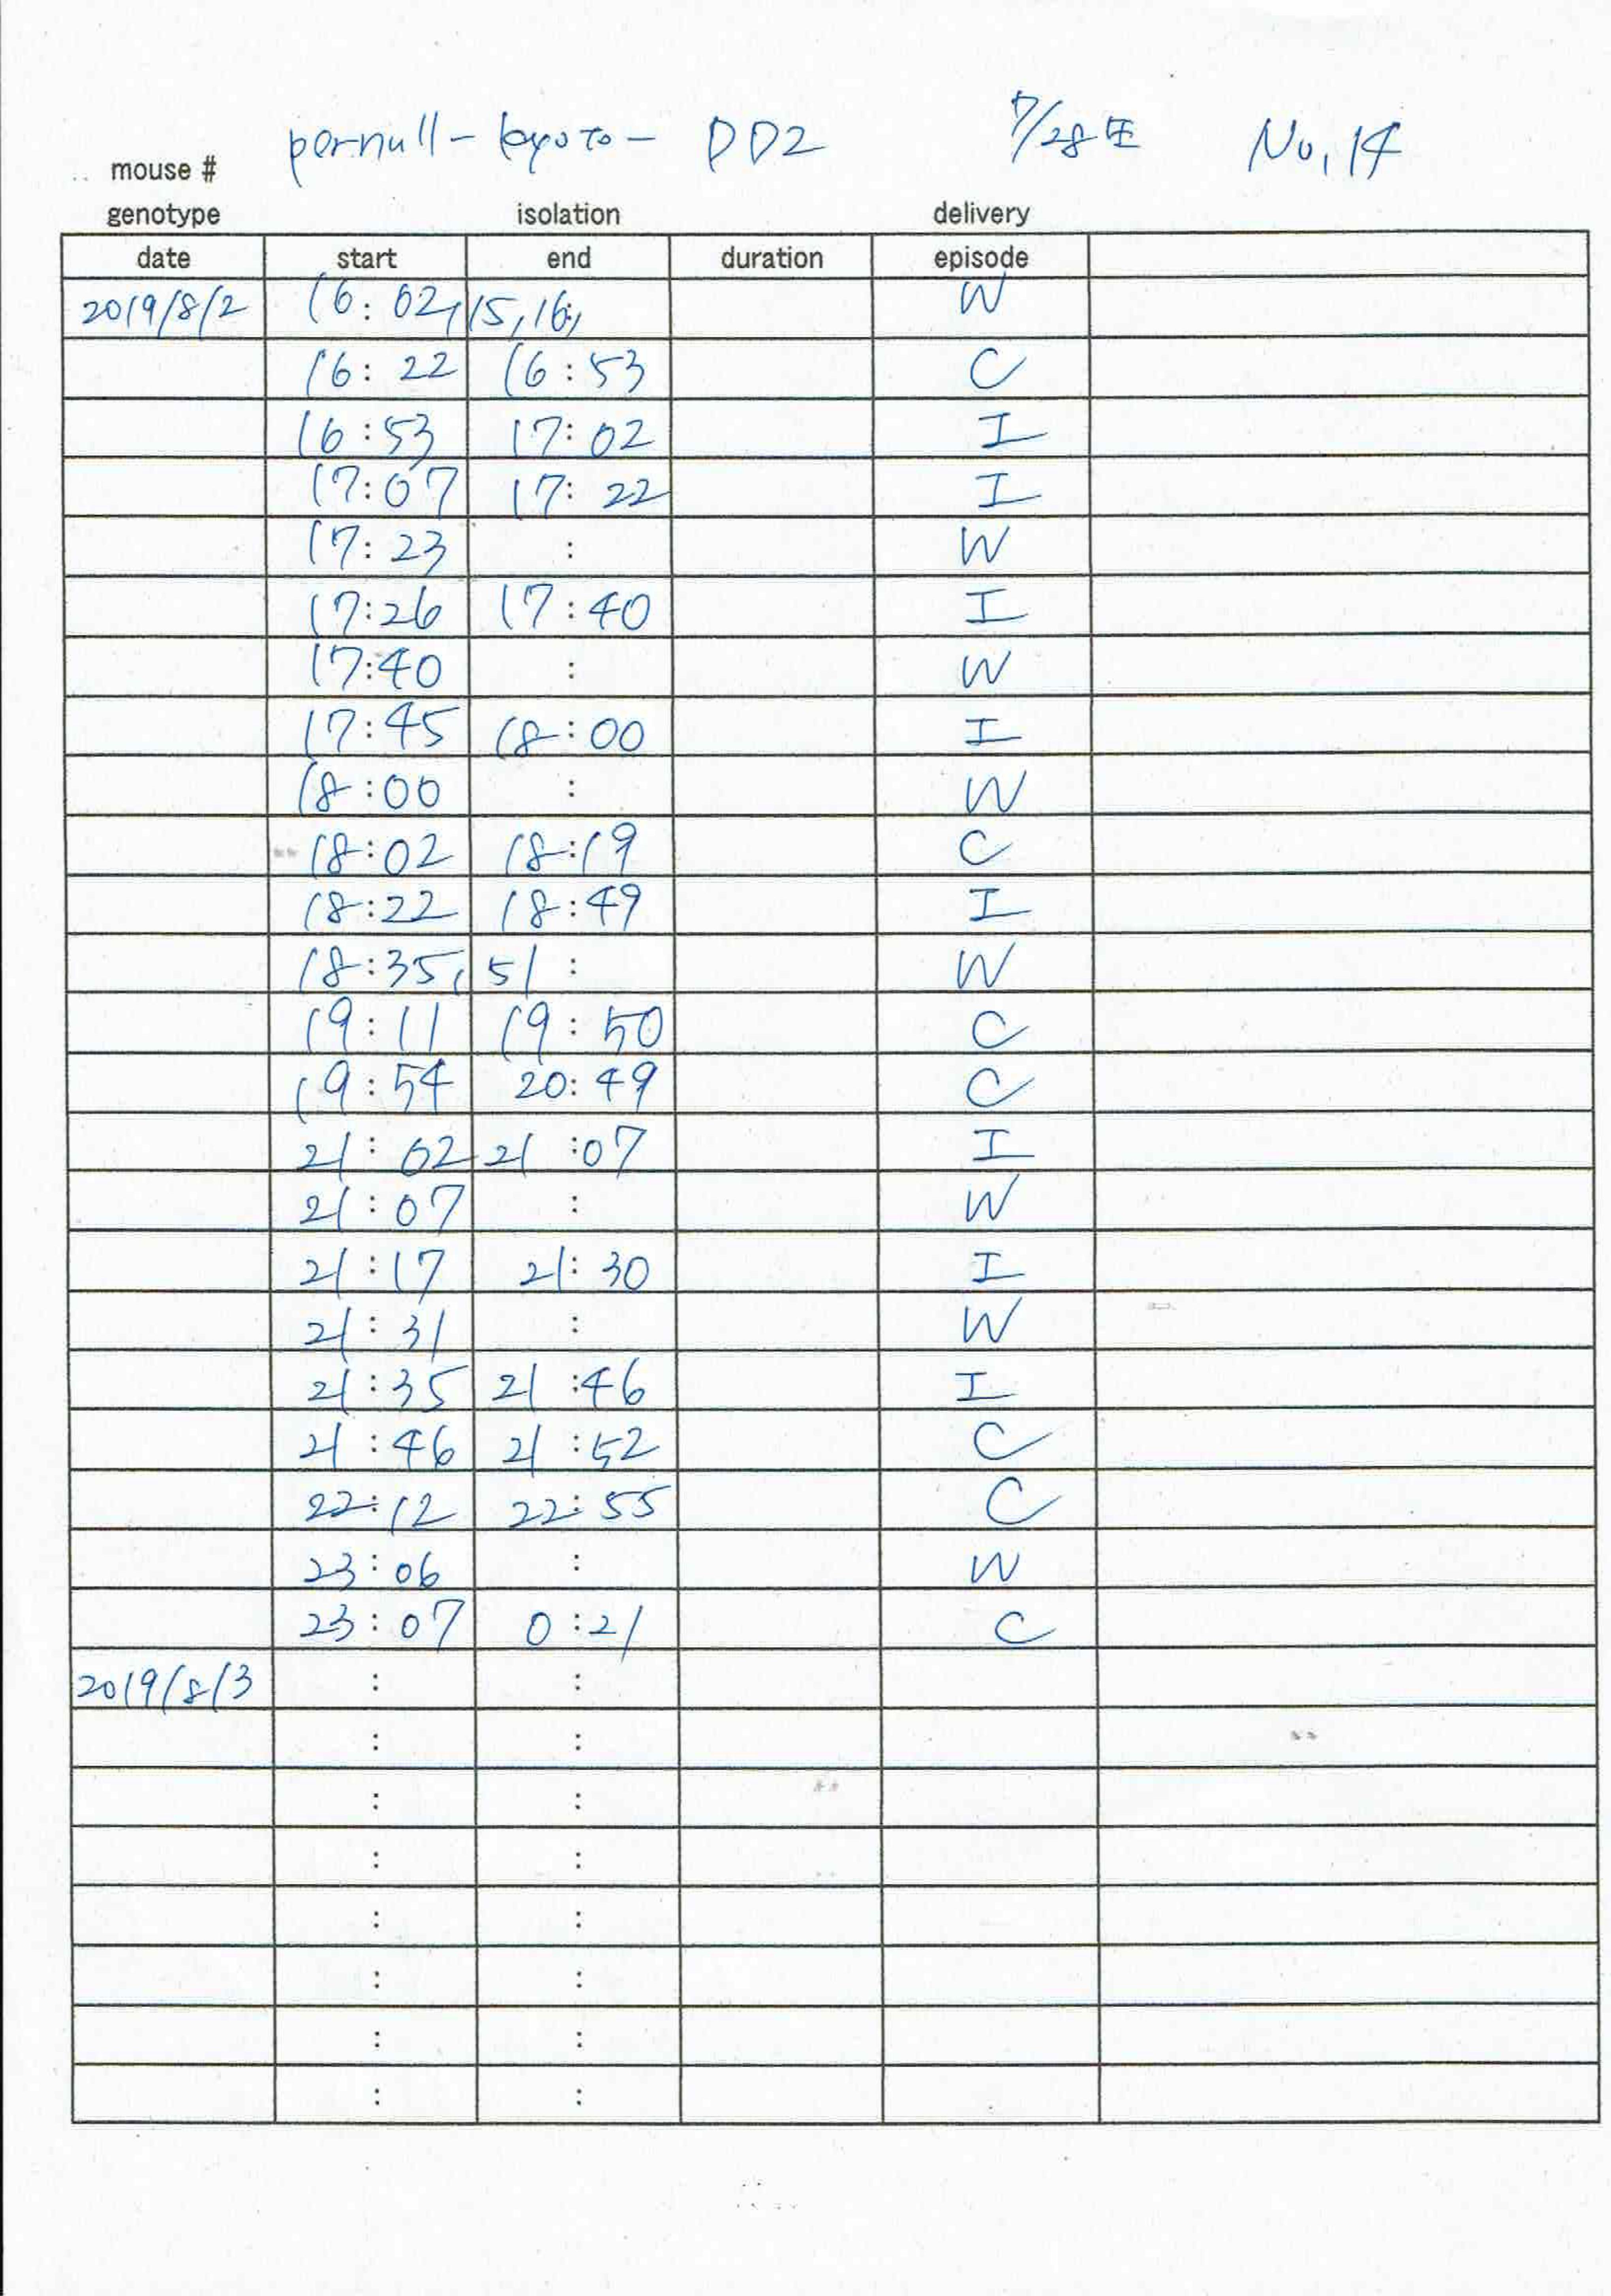 pernull-kyoto- DD2 7/28生 No,14
mouse #
genotype isolation delivery
date start end duration episode
2019/8/2 16:02, 15, 16, W
16:22 16:53 C
16:53 17:02 I
17:07 17:22 I
17:23 : W
17:26 17:40 I
17:40 : W
17:45 18:00 I
18:00 : W
18:02 18:19 C
18:22 18:49 I
18:35, 51 : W
19:11 19:50 C
19:54 20:49 C
21:02 21:07 I
21:07 : W
21:17 21:30 I
21:31 : W
21:35 21:46 I
21:46 21:52 C
22:12 22:55 C
23:06 : W
23:07 0:21 C
2019/8/3 : :
: :
: :
: :
: :
: :
: :
: :